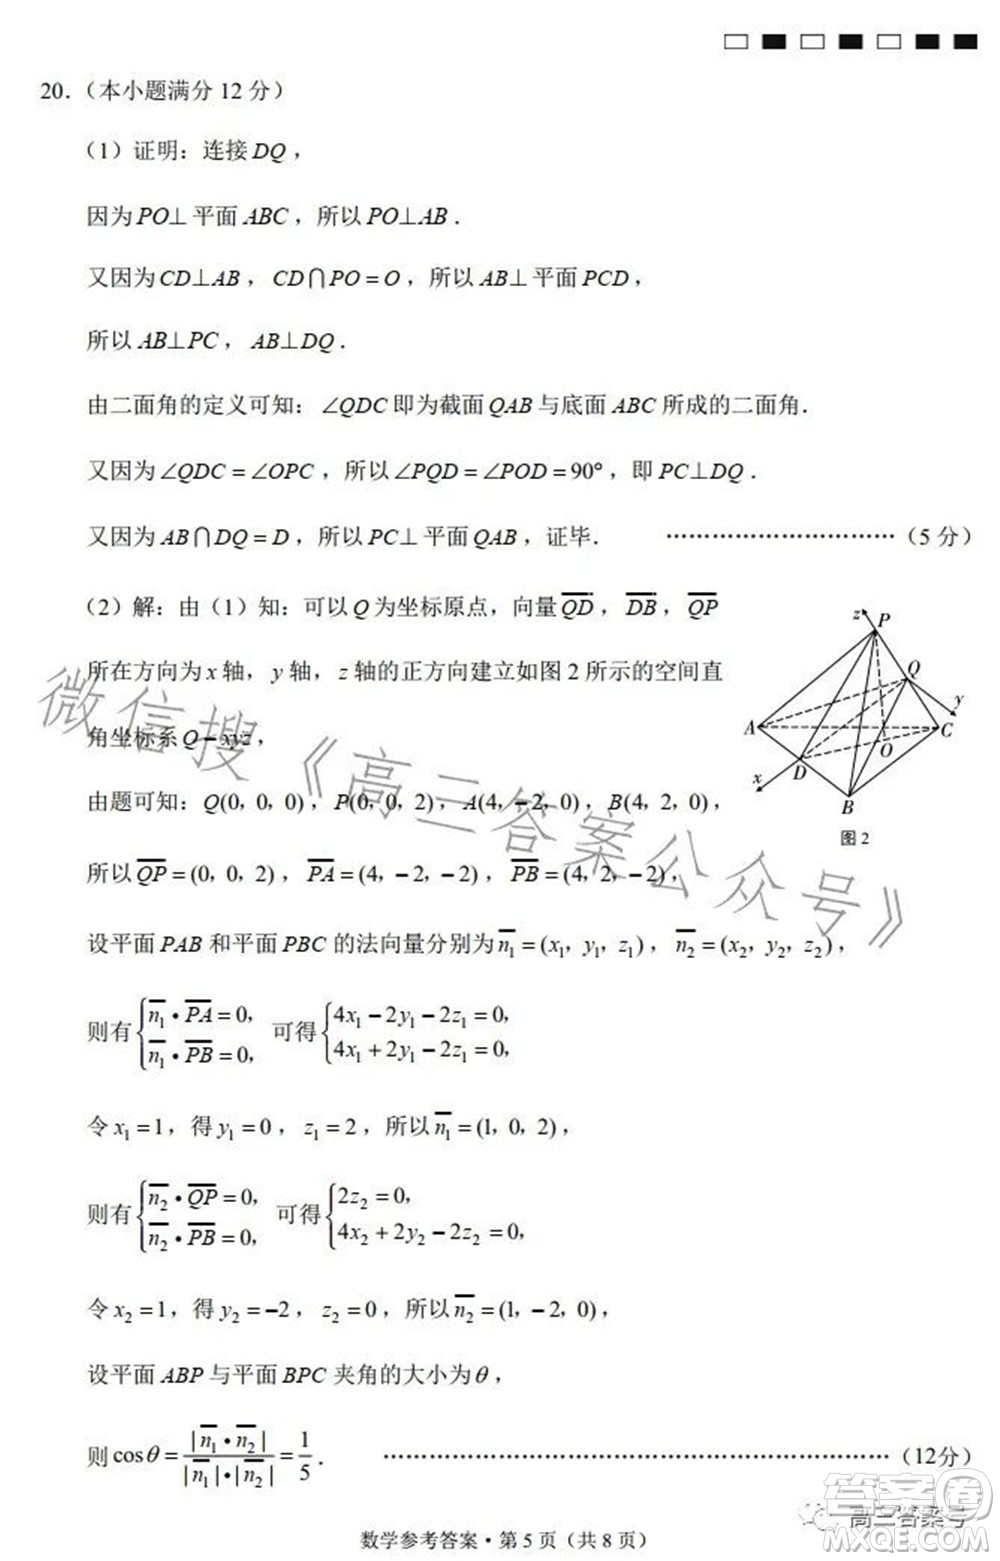 20．（本小题满分 12 分）
（1）证明：连接 DQ，
因为 PO⊥平面 ABC，所以 PO⊥AB．
又因为 CD⊥AB，CD∩PO=O，所以 AB⊥平面 PCD，
所以 AB⊥PC，AB⊥DQ．
由二面角的定义可知：∠QDC 即为截面 QAB 与底面 ABC 所成的二面角．
又因为∠QDC=∠OPC，所以∠PQD=∠POD=90°，即 PC⊥DQ．
又因为 AB∩DQ=D，所以 PC⊥平面 QAB，证毕． ……………………………（5 分）
（2）解：由（1）知：可以 Q 为坐标原点，向量 \overline{QD}，\overline{DB}，\overline{QP}
所在方向为 x 轴，y 轴，z 轴的正方向建立如图 2 所示的空间直
角坐标系 Q－xyz，
由题可知：Q(0, 0, 0)，P(0, 0, 2)，A(4, −2, 0)，B(4, 2, 0)，
所以 \overline{QP}=(0, 0, 2)，\overline{PA}=(4, −2, −2)，\overline{PB}=(4, 2, −2)，
z P Q y A O C x D B
图 2
设平面 PAB 和平面 PBC 的法向量分别为 \overline{n_1}=(x_1, y_1, z_1)，\overline{n_2}=(x_2, y_2, z_2)，
则有 { \overline{n_1}•\overline{PA}=0, \overline{n_1}•\overline{PB}=0, 可得 { 4x_1−2y_1−2z_1=0, 4x_1+2y_1−2z_1=0,
令 x_1=1，得 y_1=0，z_1=2，所以 \overline{n_1}=(1, 0, 2)，
则有 { \overline{n_2}•\overline{QP}=0, \overline{n_2}•\overline{PB}=0, 可得 { 2z_2=0, 4x_2+2y_2−2z_2=0,
令 x_2=1，得 y_2=−2，z_2=0，所以 \overline{n_2}=(1, −2, 0)，
设平面 ABP 与平面 BPC 夹角的大小为 θ，
则 cosθ=|\overline{n_1}•\overline{n_2}|/(|\overline{n_1}|•|\overline{n_2}|)=1/5． ……………………………（12分）
数学参考答案·第 5 页（共 8 页）
微信搜《高三答案公众号》
高三答案号
答案圈
MXQE.COM